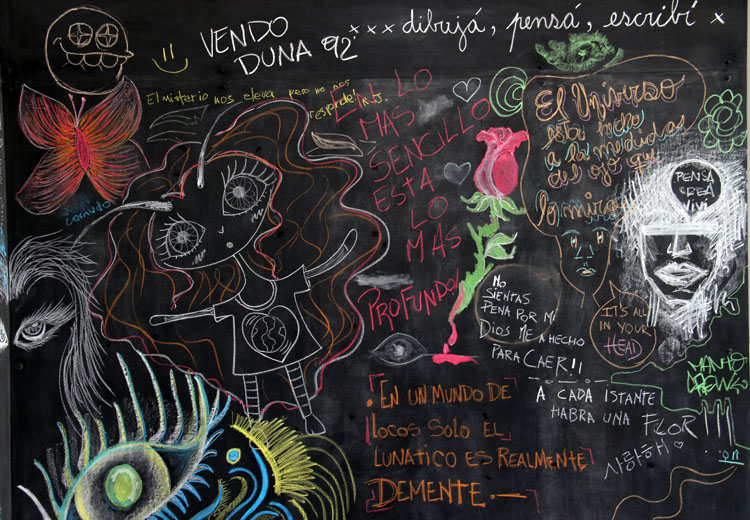 VENDO
DUNA 92'
xxx dibujá, pensá, escribí x
El misterio nos eleva pero no nos
responde! R.J.
EN LO
MAS
SENCILLO
ESTA
LO
MAS
PROFUNDO!
El Universo
está hecho
a la medida
del ojo que
lo mira
PENSA
CREA
VIVÍ
IT'S ALL
IN YOUR
HEAD
NO
SIENTAS
PENA POR MI
DIOS ME A HECHO
PARA CAER!!
A CADA ISTANTE
HABRA UNA FLOR!!!
사랑해 ♡
EN UN MUNDO DE
locos SOLO EL
LUNATICO ES REALMENTE
DEMENTE.—